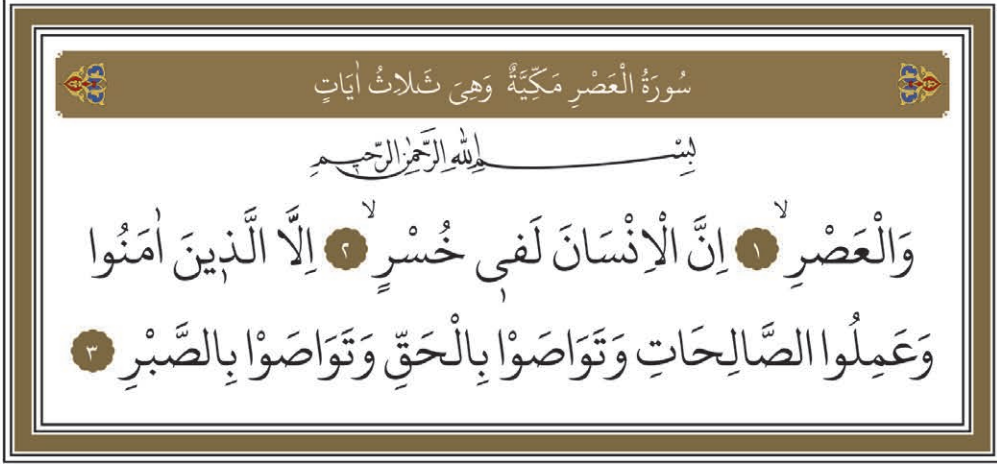 سُورَةُ الْعَصْرِ مَكِّيَّةٌ وَهِىَ ثَلَاثُ اٰيَاتٍ
بِسْمِ اللهِ الرَّحْمٰنِ الرَّحٖيمِ
وَالْعَصْرِۙ ١ اِنَّ الْاِنْسَانَ لَفٖى خُسْرٍۙ ٢ اِلَّا الَّذٖينَ اٰمَنُوا
وَعَمِلُوا الصَّالِحَاتِ وَتَوَاصَوْا بِالْحَقِّ وَتَوَاصَوْا بِالصَّبْرِ ٣